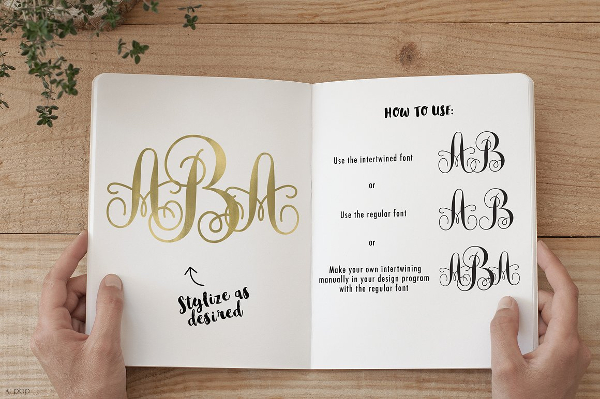 ABA
Stylize as
desired
HOW TO USE:
Use the intertwined font
AB
or
Use the regular font
AB
or
Make your own intertwining
manually in your design program
with the regular font
ABA